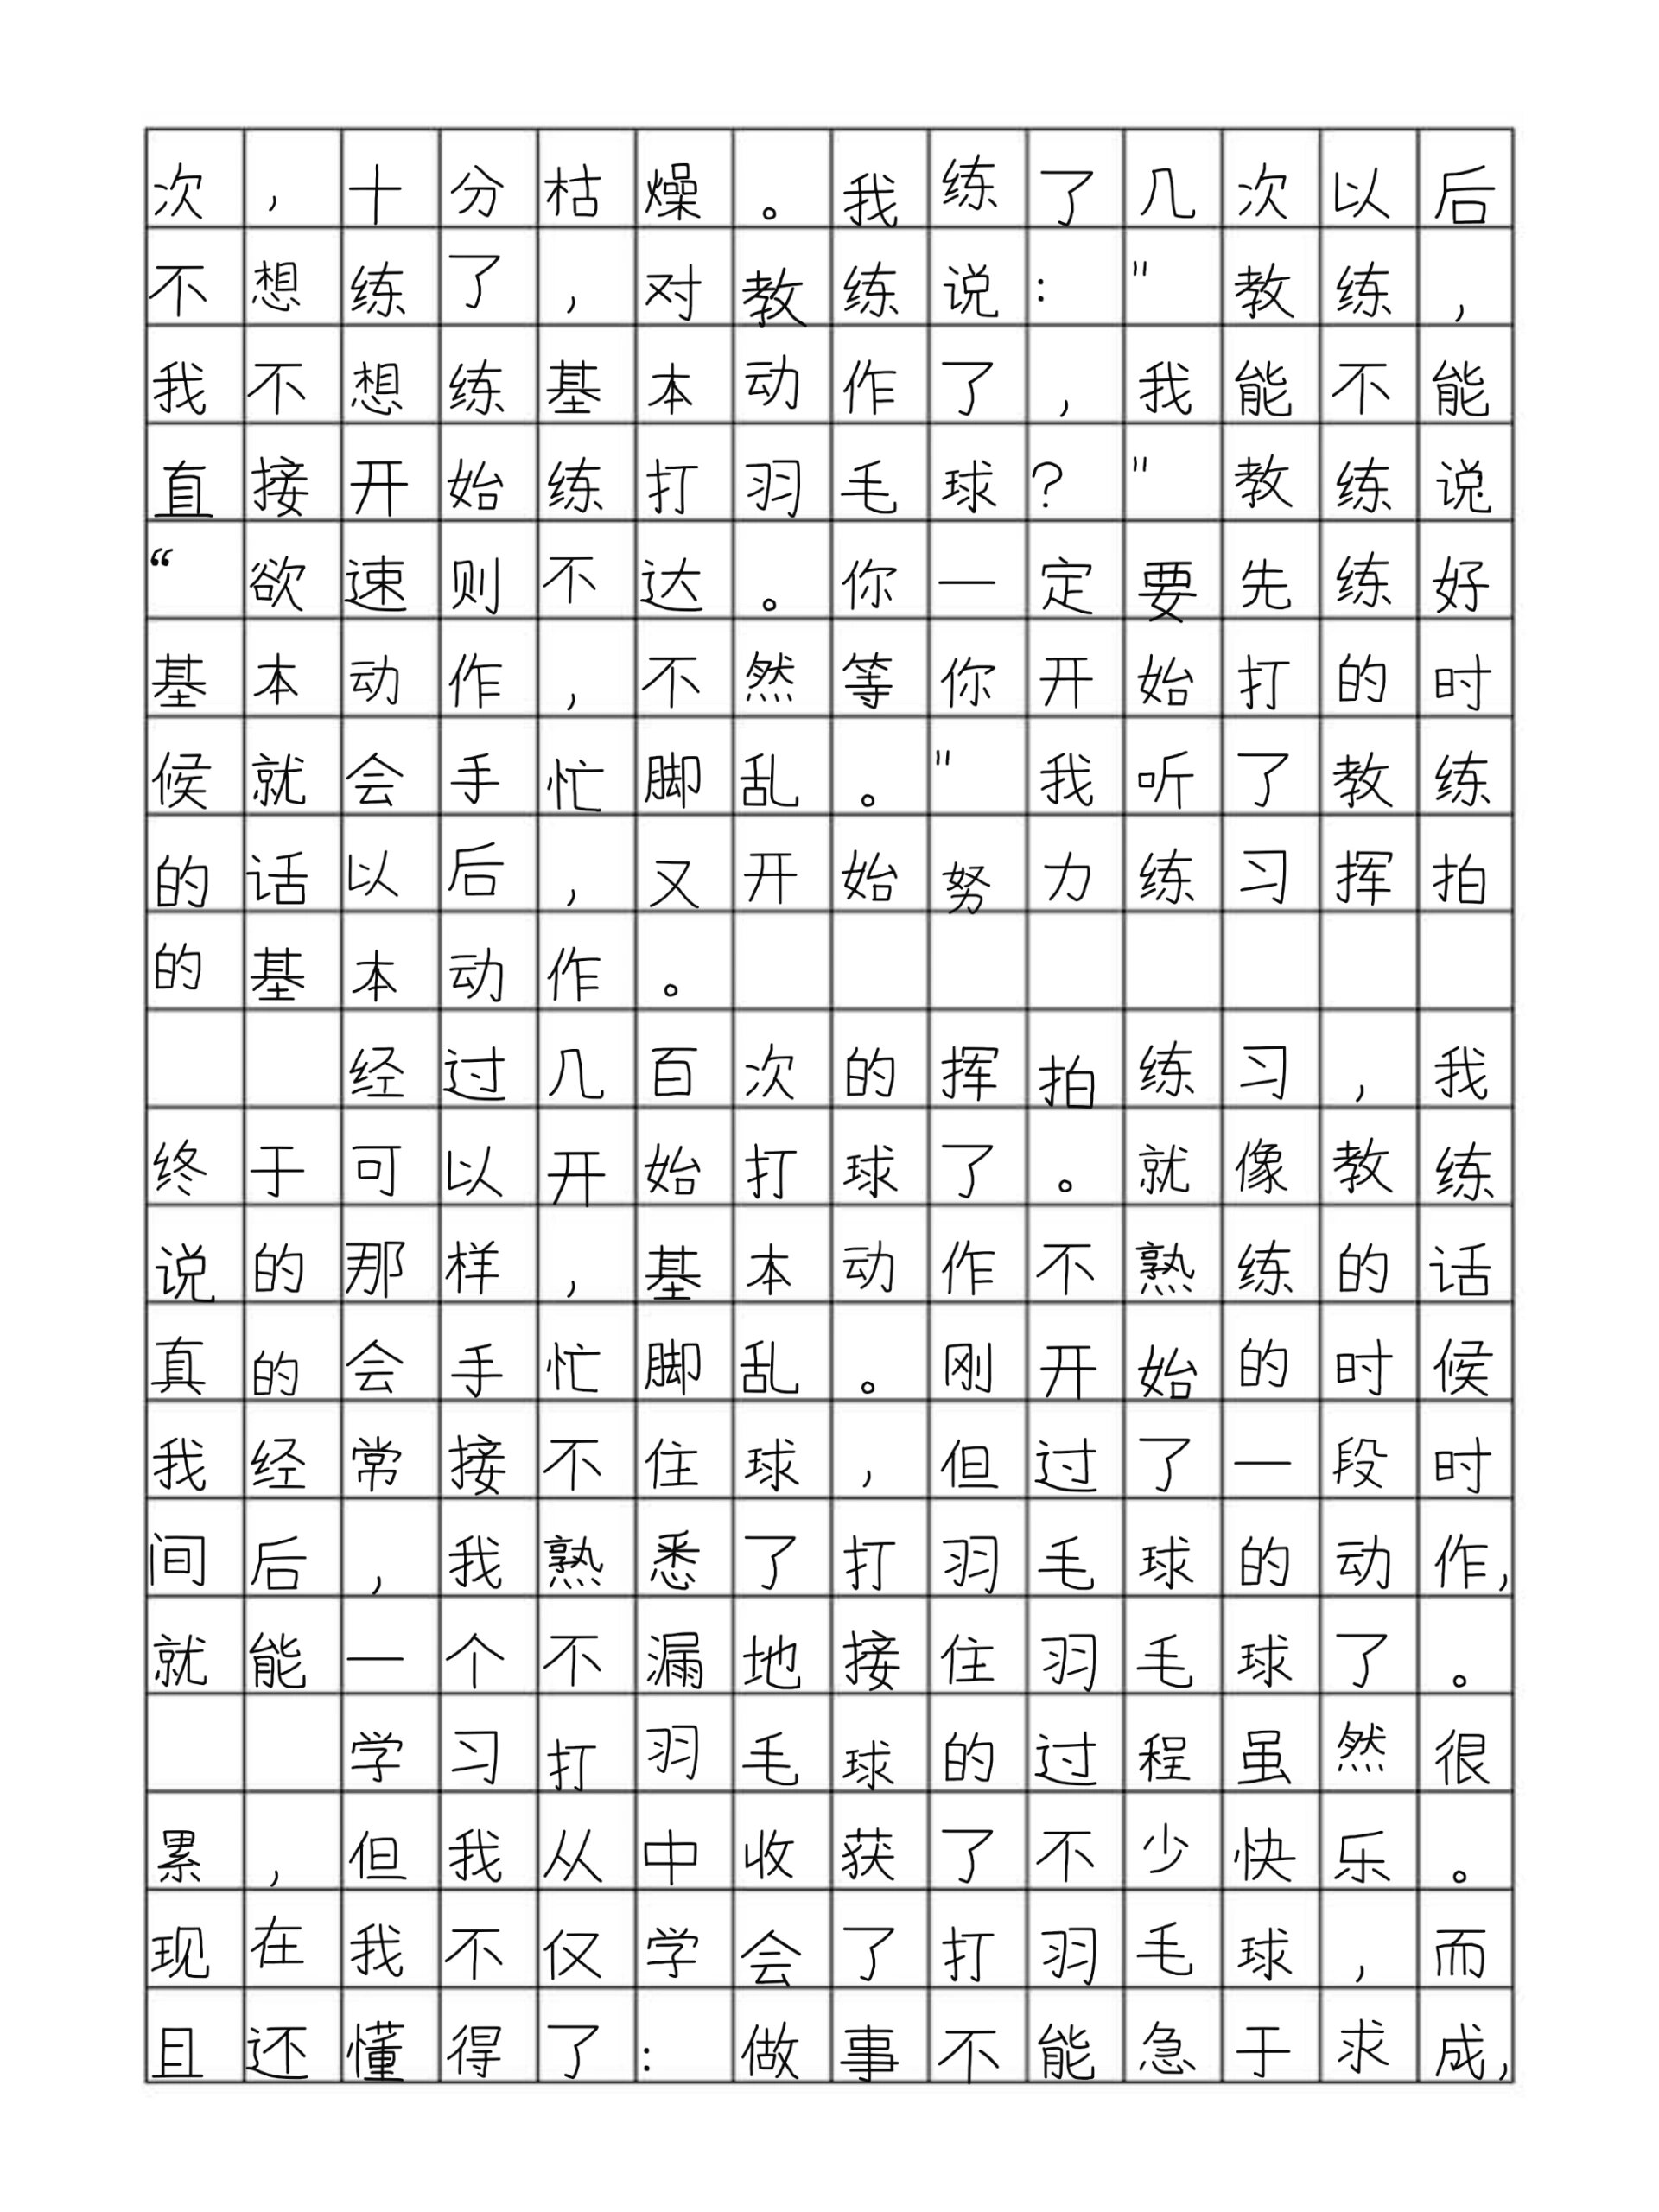 次，十分枯燥。我练了几次以后
不想练了，对教练说："教练，
我不想练基本动作了，我能不能
直接开始练打羽毛球？"教练说
“欲速则不达。你一定要先练好
基本动作，不然等你开始打的时
候就会手忙脚乱。"我听了教练
的话以后，又开始努力练习挥拍
的基本动作。
经过几百次的挥拍练习，我
终于可以开始打球了。就像教练
说的那样，基本动作不熟练的话
真的会手忙脚乱。刚开始的时候
我经常接不住球，但过了一段时
间后，我熟悉了打羽毛球的动作，
就能一个不漏地接住羽毛球了。
学习打羽毛球的过程虽然很
累，但我从中收获了不少快乐。
现在我不仅学会了打羽毛球，而
且还懂得了：做事不能急于求成，